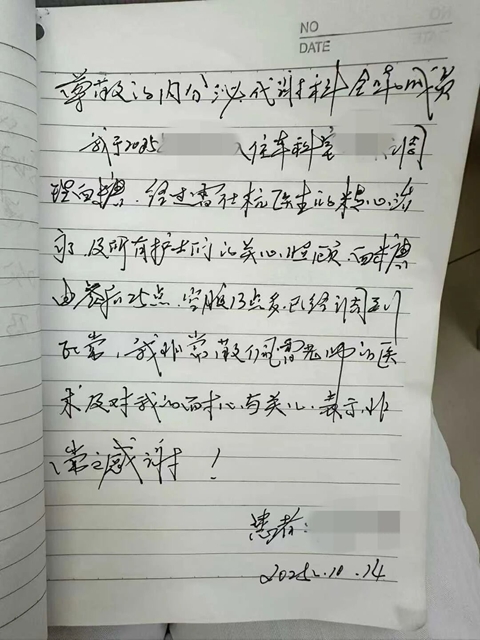 NO
DATE
尊敬的内分泌代谢科全体成员
我于2025 入住本科室 调
理血糖，经过雷社杭医生的精心治
疗，及所有护士们的关心照顾，血糖
由餐后25点，空腹13点多，已经调到
正常，我非常敬佩雷老师的医
术及对我的耐心与关心，表示非
常之感谢！
患者：
2025.10.14